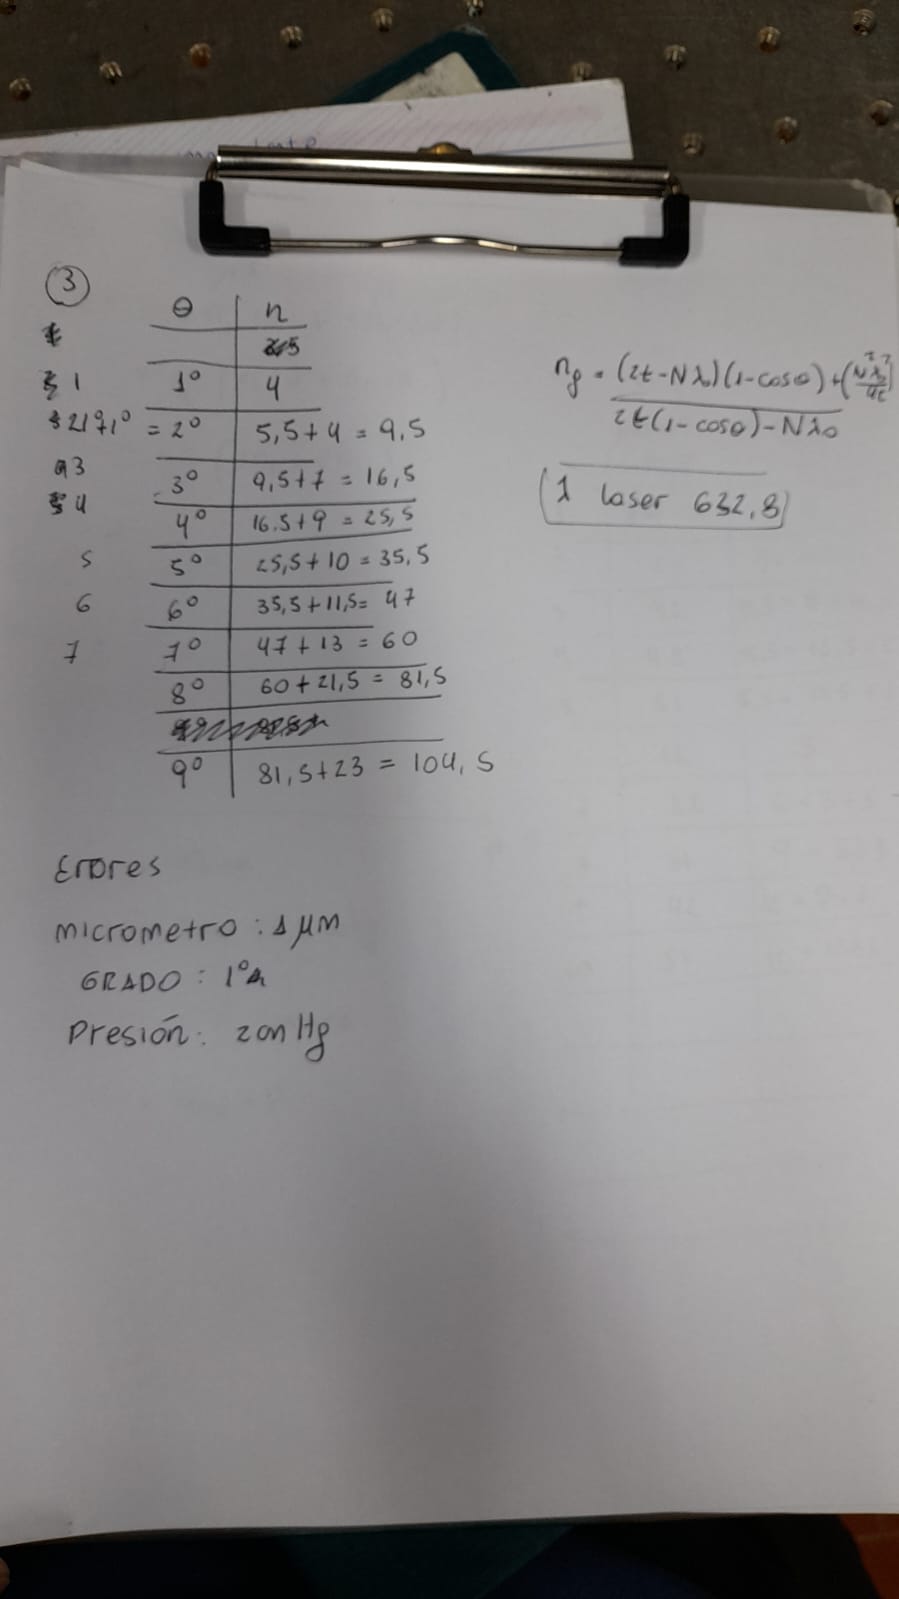 3
θ n
1 1° 4
= 2° 5,5+4 = 9,5
3 3° 9,5+7 = 16,5
4 4° 16.5+9 = 25,5
5 5° 25,5+10 = 35,5
6 6° 35,5+11,5= 47
7 7° 47+13 = 60
8° 60+21,5 = 81,5
9° 81,5+23 = 104,5
ng = (2t-Nλ₀)(1-cosθ)+(N²λ₀²/4t)
2t(1-cosθ)-Nλ₀
λ laser 632,8
Errores
micrometro : 1 μm
GRADO : 1°
Presión: 2cm Hg